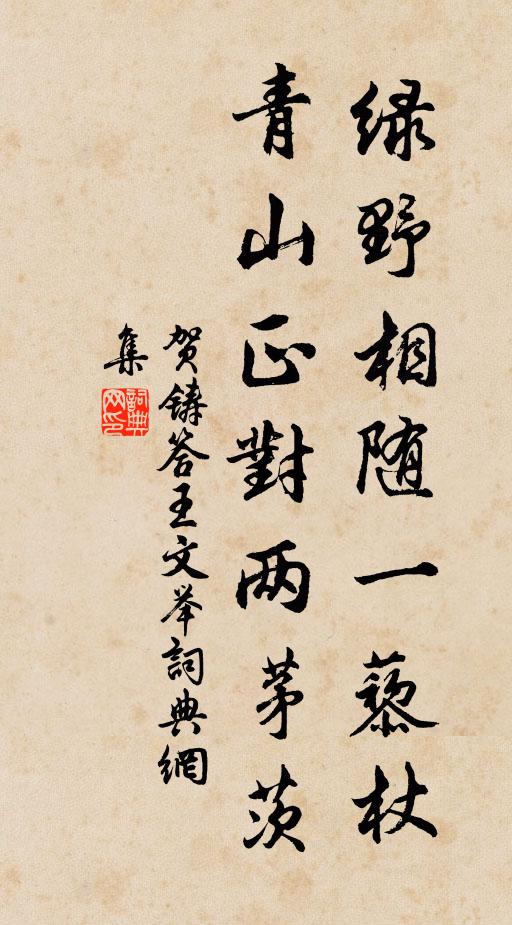 绿野相随一藜杖
青山正對两茅茨
贺铸答王文举詞典網
集
詞典网印